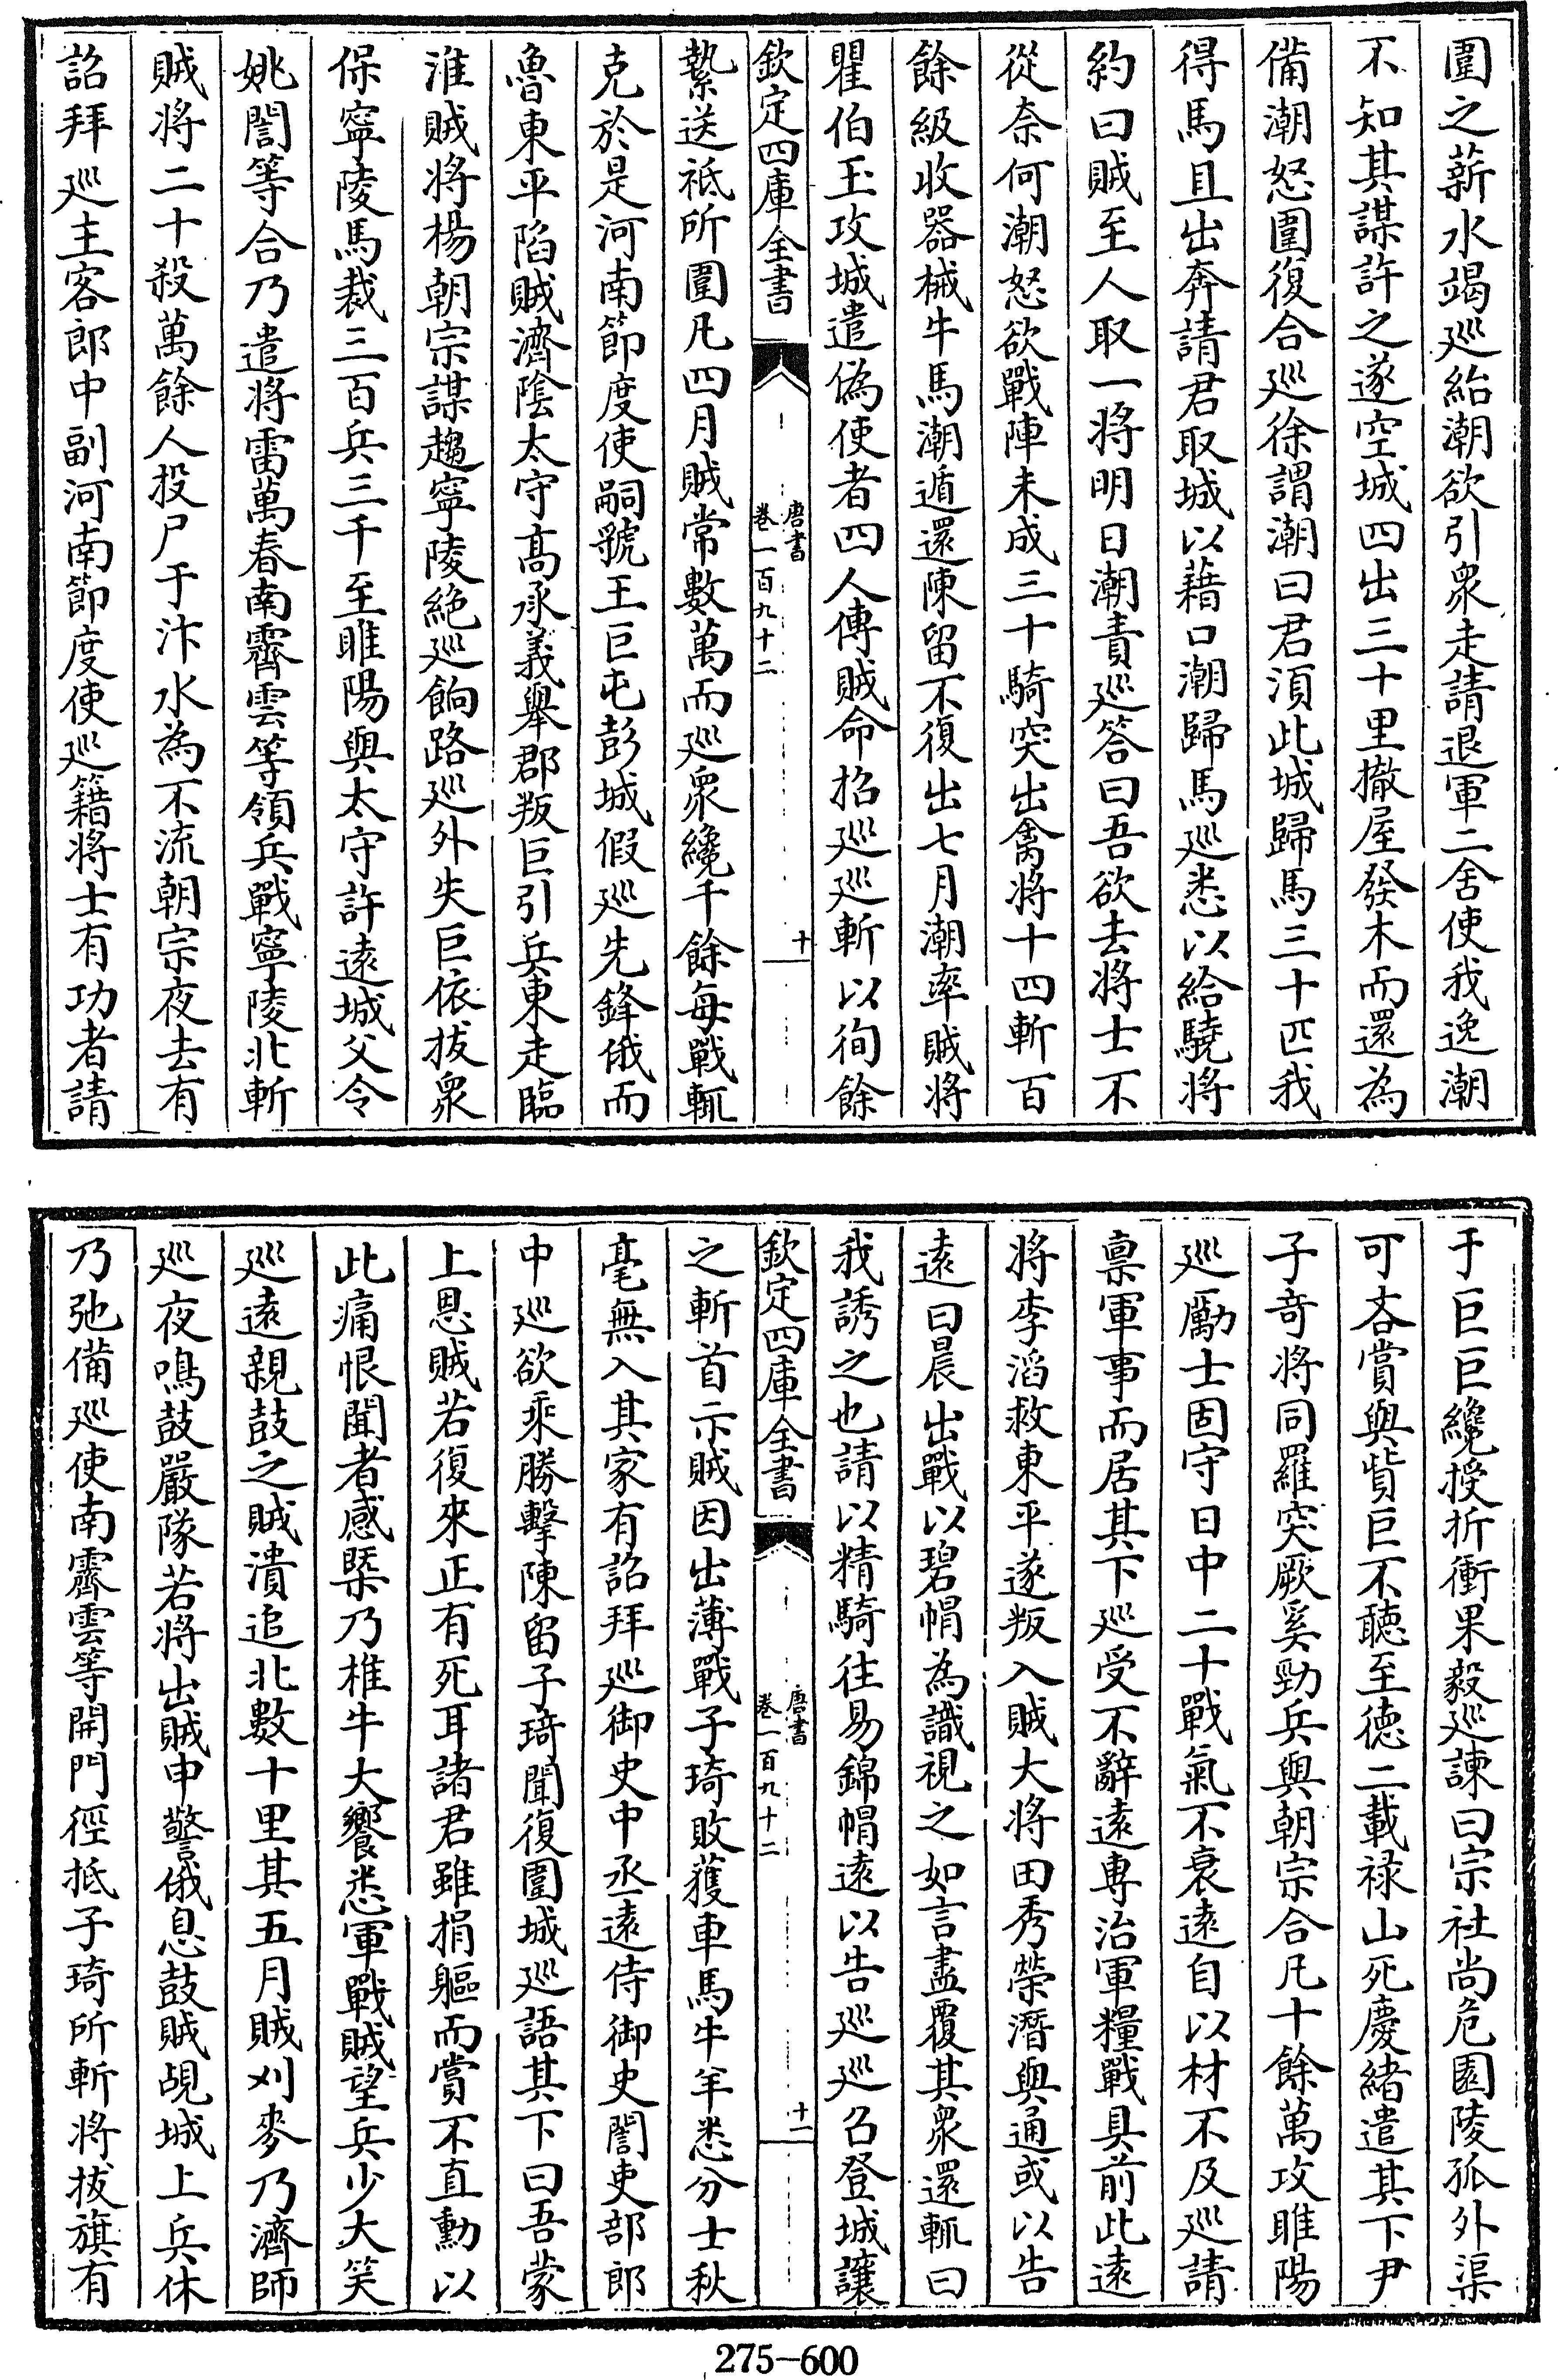 圍之薪水竭巡紿潮欲引衆走請退軍二舍使我逸潮
不知其謀許之遂空城四出三十里撤屋發木而還為
備潮怒圍復合巡徐謂潮曰君湏此城歸馬三十匹我
得馬且出奔請君取城以藉口潮歸馬巡悉以給驍將
約曰賊至人取一將明日潮責巡答曰吾欲去將士不
從奈何潮怒欲戰陣未成三十騎突出禽將十四斬百
餘級收器械牛馬潮遁還陳留不復出七月潮率賊將
瞿伯玉攻城遣偽使者四人傳賊命招巡巡斬以徇餘
欽定四庫全書
唐書
卷一百九十二
十
縶送祇所圍凡四月賊常數萬而巡衆纔千餘每戰輒
克於是河南節度使嗣虢王巨屯彭城假巡先鋒俄而
魯東平陷賊濟陰太守髙承義舉郡叛巨引兵東走臨
淮賊將楊朝宗謀趨寧陵絶巡餉路巡外失巨依拔衆
保寧陵馬裁三百兵三千至睢陽與太守許逺城父令
姚誾等合乃遣將雷萬春南霽雲等領兵戰寧陵北斬
賊將二十殺萬餘人投尸于汴水為不流朝宗夜去有
詔拜巡主客郎中副河南節度使巡籍將士有功者請
于巨巨纔授折衝果毅巡諫曰宗社尚危園陵孤外渠
可吝賞與貲巨不聽至徳二載禄山死慶緒遣其下尹
子奇將同羅突厥奚勁兵與朝宗合凡十餘萬攻睢陽
巡勵士固守日中二十戰氣不衰逺自以材不及巡請
禀軍事而居其下巡受不辭逺專治軍糧戰具前此逺
將李滔救東平遂叛入賊大將田秀榮潛與通或以告
逺曰晨出戰以碧帽為識視之如言盡覆其衆還輒曰
我誘之也請以精騎往易錦帽逺以告巡巡召登城讓
欽定四庫全書
唐書
卷一百九十二
十一
之斬首示賊因出薄戰子琦敗獲車馬牛羊悉分士秋
毫無入其家有詔拜巡御史中丞逺侍御史誾吏部郎
中巡欲乘勝擊陳留子琦聞復圍城巡語其下曰吾蒙
上恩賊若復來正有死耳諸君雖捐軀而賞不直勳以
此痛恨聞者感槩乃椎牛大饗悉軍戰賊望兵少大笑
巡逺親鼓之賊潰追北數十里其五月賊刈麥乃濟師
巡夜鳴鼓嚴隊若將出賊申警俄息鼓賊覘城上兵休
乃弛備巡使南霽雲等開門徑抵子琦所斬將拔旗有
275-600